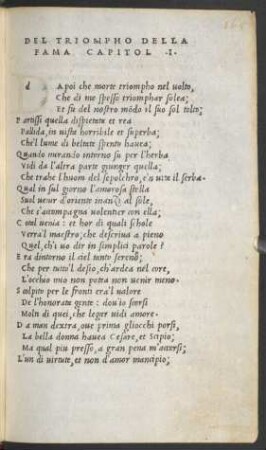 DEL TRIOMPHO DELLA
FAMA CAPITOL .I.
d A poi che morte triompho nel uolto,
Che di me spesso triomphar solea;
Et fu del nostro mōdo il suo sol tolto;
P artissi quella dispietata et rea
Pallida in uista horribile et superba;
Che'l lume di beltate spento hauea;
Quando mirando intorno su per l'herba
Vidi da l'altra parte giunger quella,
Che trahe l'huom del sepolchro, e'n uita il serba.
Qual in sul giorno l'amorosa stella
Suol uenir d'oriente inanzi al sole,
Che s'accompagna uolentier con ella;
C otal uenia: et hor di quali schole
Verra'l maestro; che descriua a pieno
Quel, ch'i uo dir in simplici parole?
E ra dintorno il ciel tanto sereno;
Che per tutto'l desio, ch'ardea nel core,
L'occhio mio non potea non uenir meno.
S colpito per le fronti era'l ualore
De l'honorata gente: dou io scorsi
Molti di quei, che legar uidi amore.
D a man dextra, oue prima gliocchi porsi,
La bella donna hauea Cesare, et Scipio;
Ma qual piu presso, a gran pena m'accorsi;
L'un di uirtute, et non d'amor mancipio;